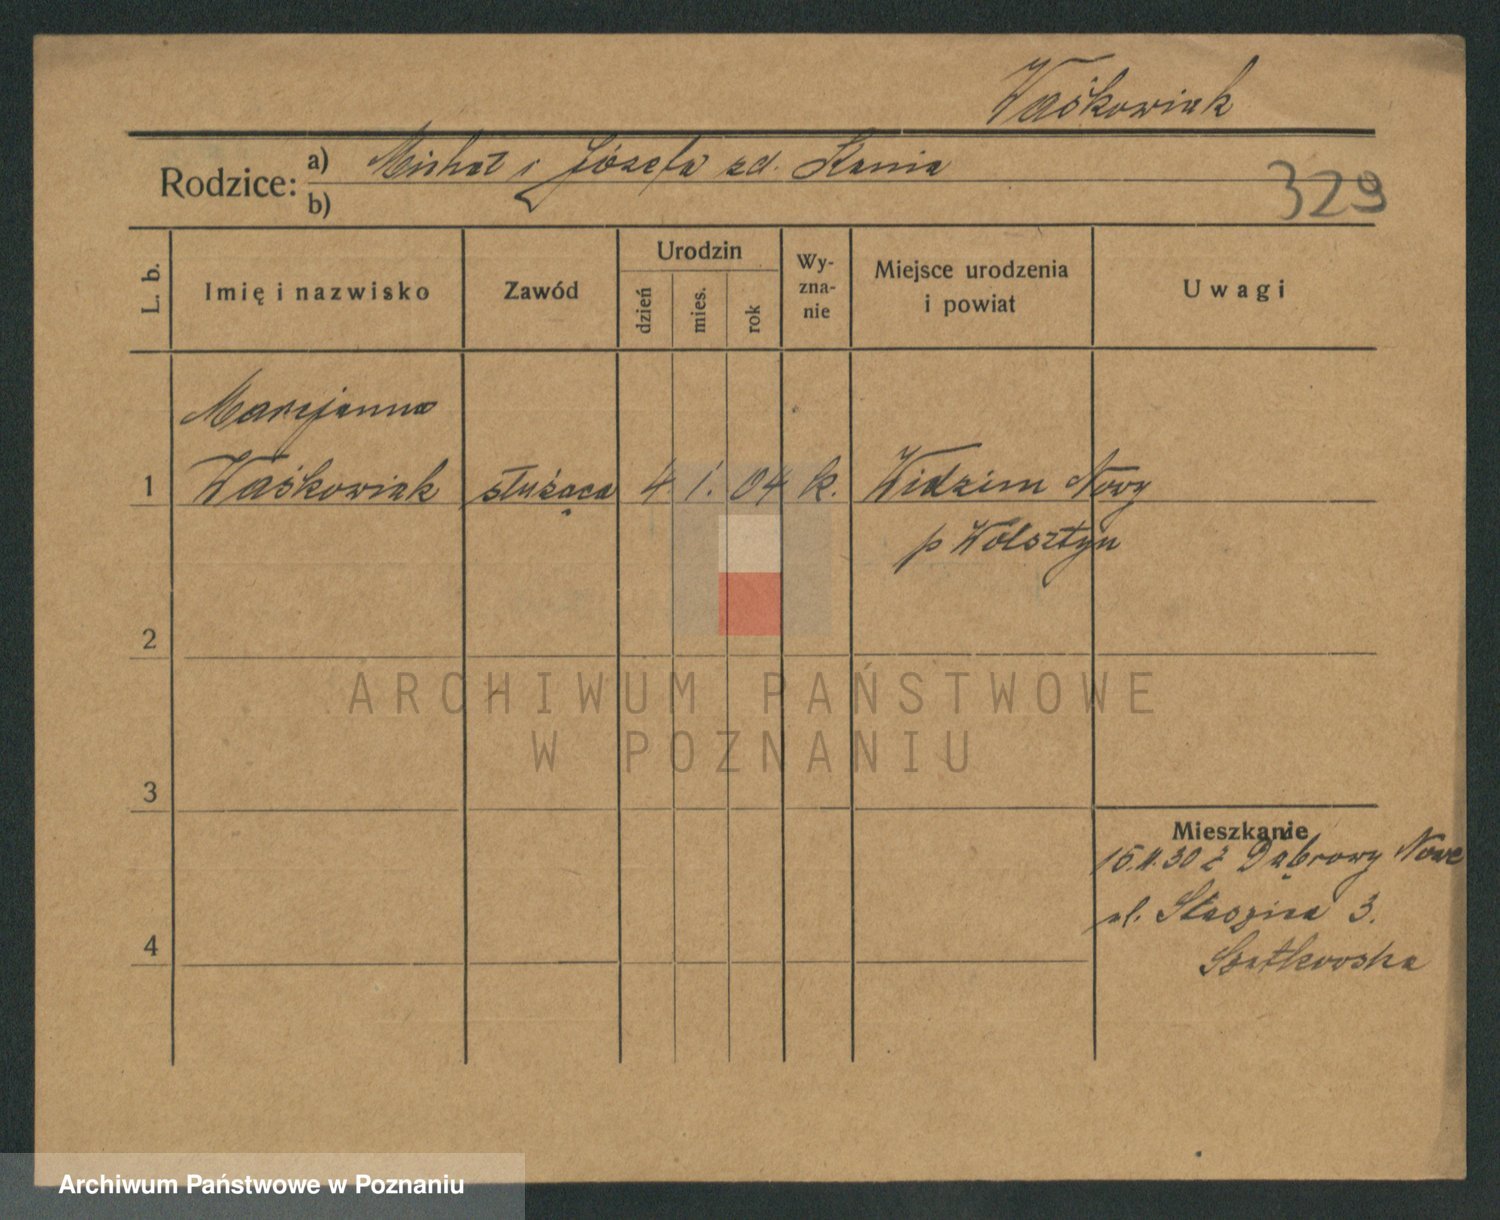 Waśkowiak
Rodzice:
a) Michał i Józefa zd. Kania
b)
329
L. b.
Imię i nazwisko
Zawód
Urodzin
dzień
mies.
rok
Wy-
zna-
nie
Miejsce urodzenia
i powiat
Uwagi
Marjanna
1 Waśkowiak służąca 4. 1. 04 k. Widzim Nowy
p Wolsztyn
2
ARCHIWUM PAŃSTWOWE
W POZNANIU
3
Mieszkanie
15.11.30 z Dąbrowy Nowe
ul. Staszica 3.
4
Archiwum Państwowe w Poznaniu